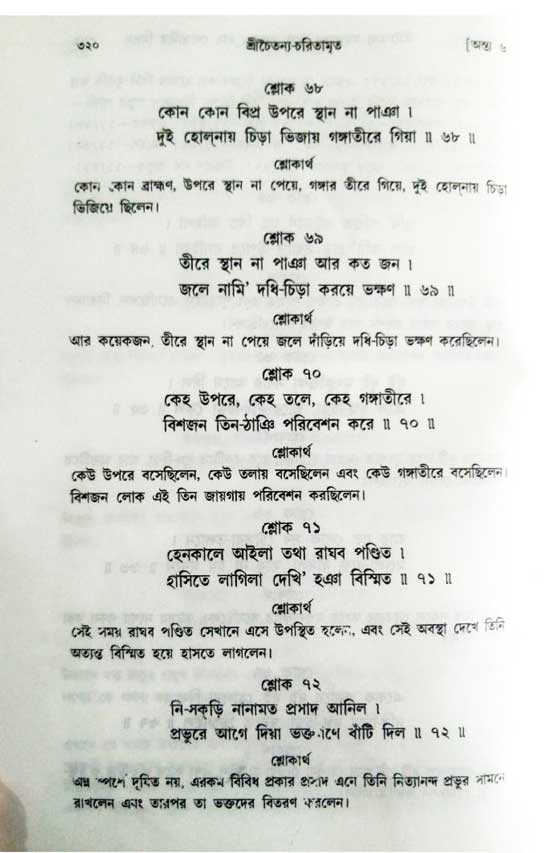 ৩২০ শ্রীচৈতন্য-চরিতামৃত [অন্ত্য ৬
শ্লোক ৬৮
কোন কোন বিপ্র উপরে স্থান না পাঞা ।
দুই হোল্‌নায় চিড়া ভিজায় গঙ্গাতীরে গিয়া ॥ ৬৮ ॥
শ্লোকার্থ
কোন কোন ব্রাহ্মণ, উপরে স্থান না পেয়ে, গঙ্গার তীরে গিয়ে, দুই হোল্‌নায় চিড়া
ভিজিয়ে ছিলেন।
শ্লোক ৬৯
তীরে স্থান না পাঞা আর কত জন ।
জলে নামি' দধি-চিড়া করয়ে ভক্ষণ ॥ ৬৯ ॥
শ্লোকার্থ
আর কয়েকজন, তীরে স্থান না পেয়ে জলে দাঁড়িয়ে দধি-চিড়া ভক্ষণ করেছিলেন।
শ্লোক ৭০
কেহ উপরে, কেহ তলে, কেহ গঙ্গাতীরে ।
বিশজন তিন-ঠাঞি পরিবেশন করে ॥ ৭০ ॥
শ্লোকার্থ
কেউ উপরে বসেছিলেন, কেউ তলায় বসেছিলেন এবং কেউ গঙ্গাতীরে বসেছিলেন।
বিশজন লোক এই তিন জায়গায় পরিবেশন করছিলেন।
শ্লোক ৭১
হেনকালে আইলা তথা রাঘব পণ্ডিত ।
হাসিতে লাগিলা দেখি' হঞা বিস্মিত ॥ ৭১ ॥
শ্লোকার্থ
সেই সময় রাঘব পণ্ডিত সেখানে এসে উপস্থিত হলেন, এবং সেই অবস্থা দেখে তিনি
অত্যন্ত বিস্মিত হয়ে হাসতে লাগলেন।
শ্লোক ৭২
নি-সকড়ি নানামত প্রসাদ আনিল ।
প্রভুরে আগে দিয়া ভক্তগণে বাঁটি দিল ॥ ৭২ ॥
শ্লোকার্থ
অন্ন স্পর্শে দূষিত নয়, এরকম বিবিধ প্রকার প্রসাদ এনে তিনি নিত্যানন্দ প্রভুর সামনে
রাখলেন এবং তারপর তা ভক্তদের বিতরণ করলেন।